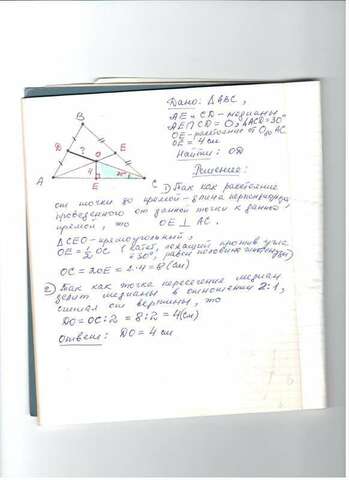 Дано: △ABC,
AE и CD - медианы
AE∩CD = O; ∠ACD=30°
OE - расстояние от O до AC
OE = 4 см
Найти: OD
Решение:
B
D ? E
O
4
A E 30° C
1) Так как расстояние
от точки до прямой - длина перпендикуляра,
проведенного от данной точки к данной
прямой, то OE ⊥ AC.
△CEO - прямоугольный,
OE = 1/2 OC (катет, лежащий против угла
в 30°, равен половине гипотенузы)
OC = 2OE = 2·4 = 8 (см)
2) Так как точка пересечения медиан
делит медианы в отношении 2:1,
считая от вершины, то
DO = OC : 2 = 8 : 2 = 4 (см)
Ответ: DO = 4 см